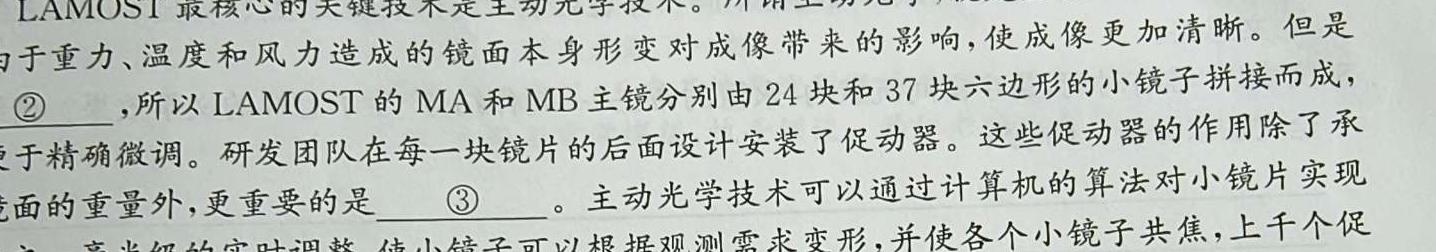 LAMOST 最核心的关键技术是主动光学技术。所谓主动光学,
由于重力、温度和风力造成的镜面本身形变对成像带来的影响,使成像更加清晰。但是
② ,所以 LAMOST 的 MA 和 MB 主镜分别由 24 块和 37 块六边形的小镜子拼接而成,
便于精确微调。研发团队在每一块镜片的后面设计安装了促动器。这些促动器的作用除了承
镜面的重量外,更重要的是 ③ 。主动光学技术可以通过计算机的算法对小镜片实现
毫米级的实时调整,使小镜子可以根据观测需求变形,并使各个小镜子共焦,上千个促